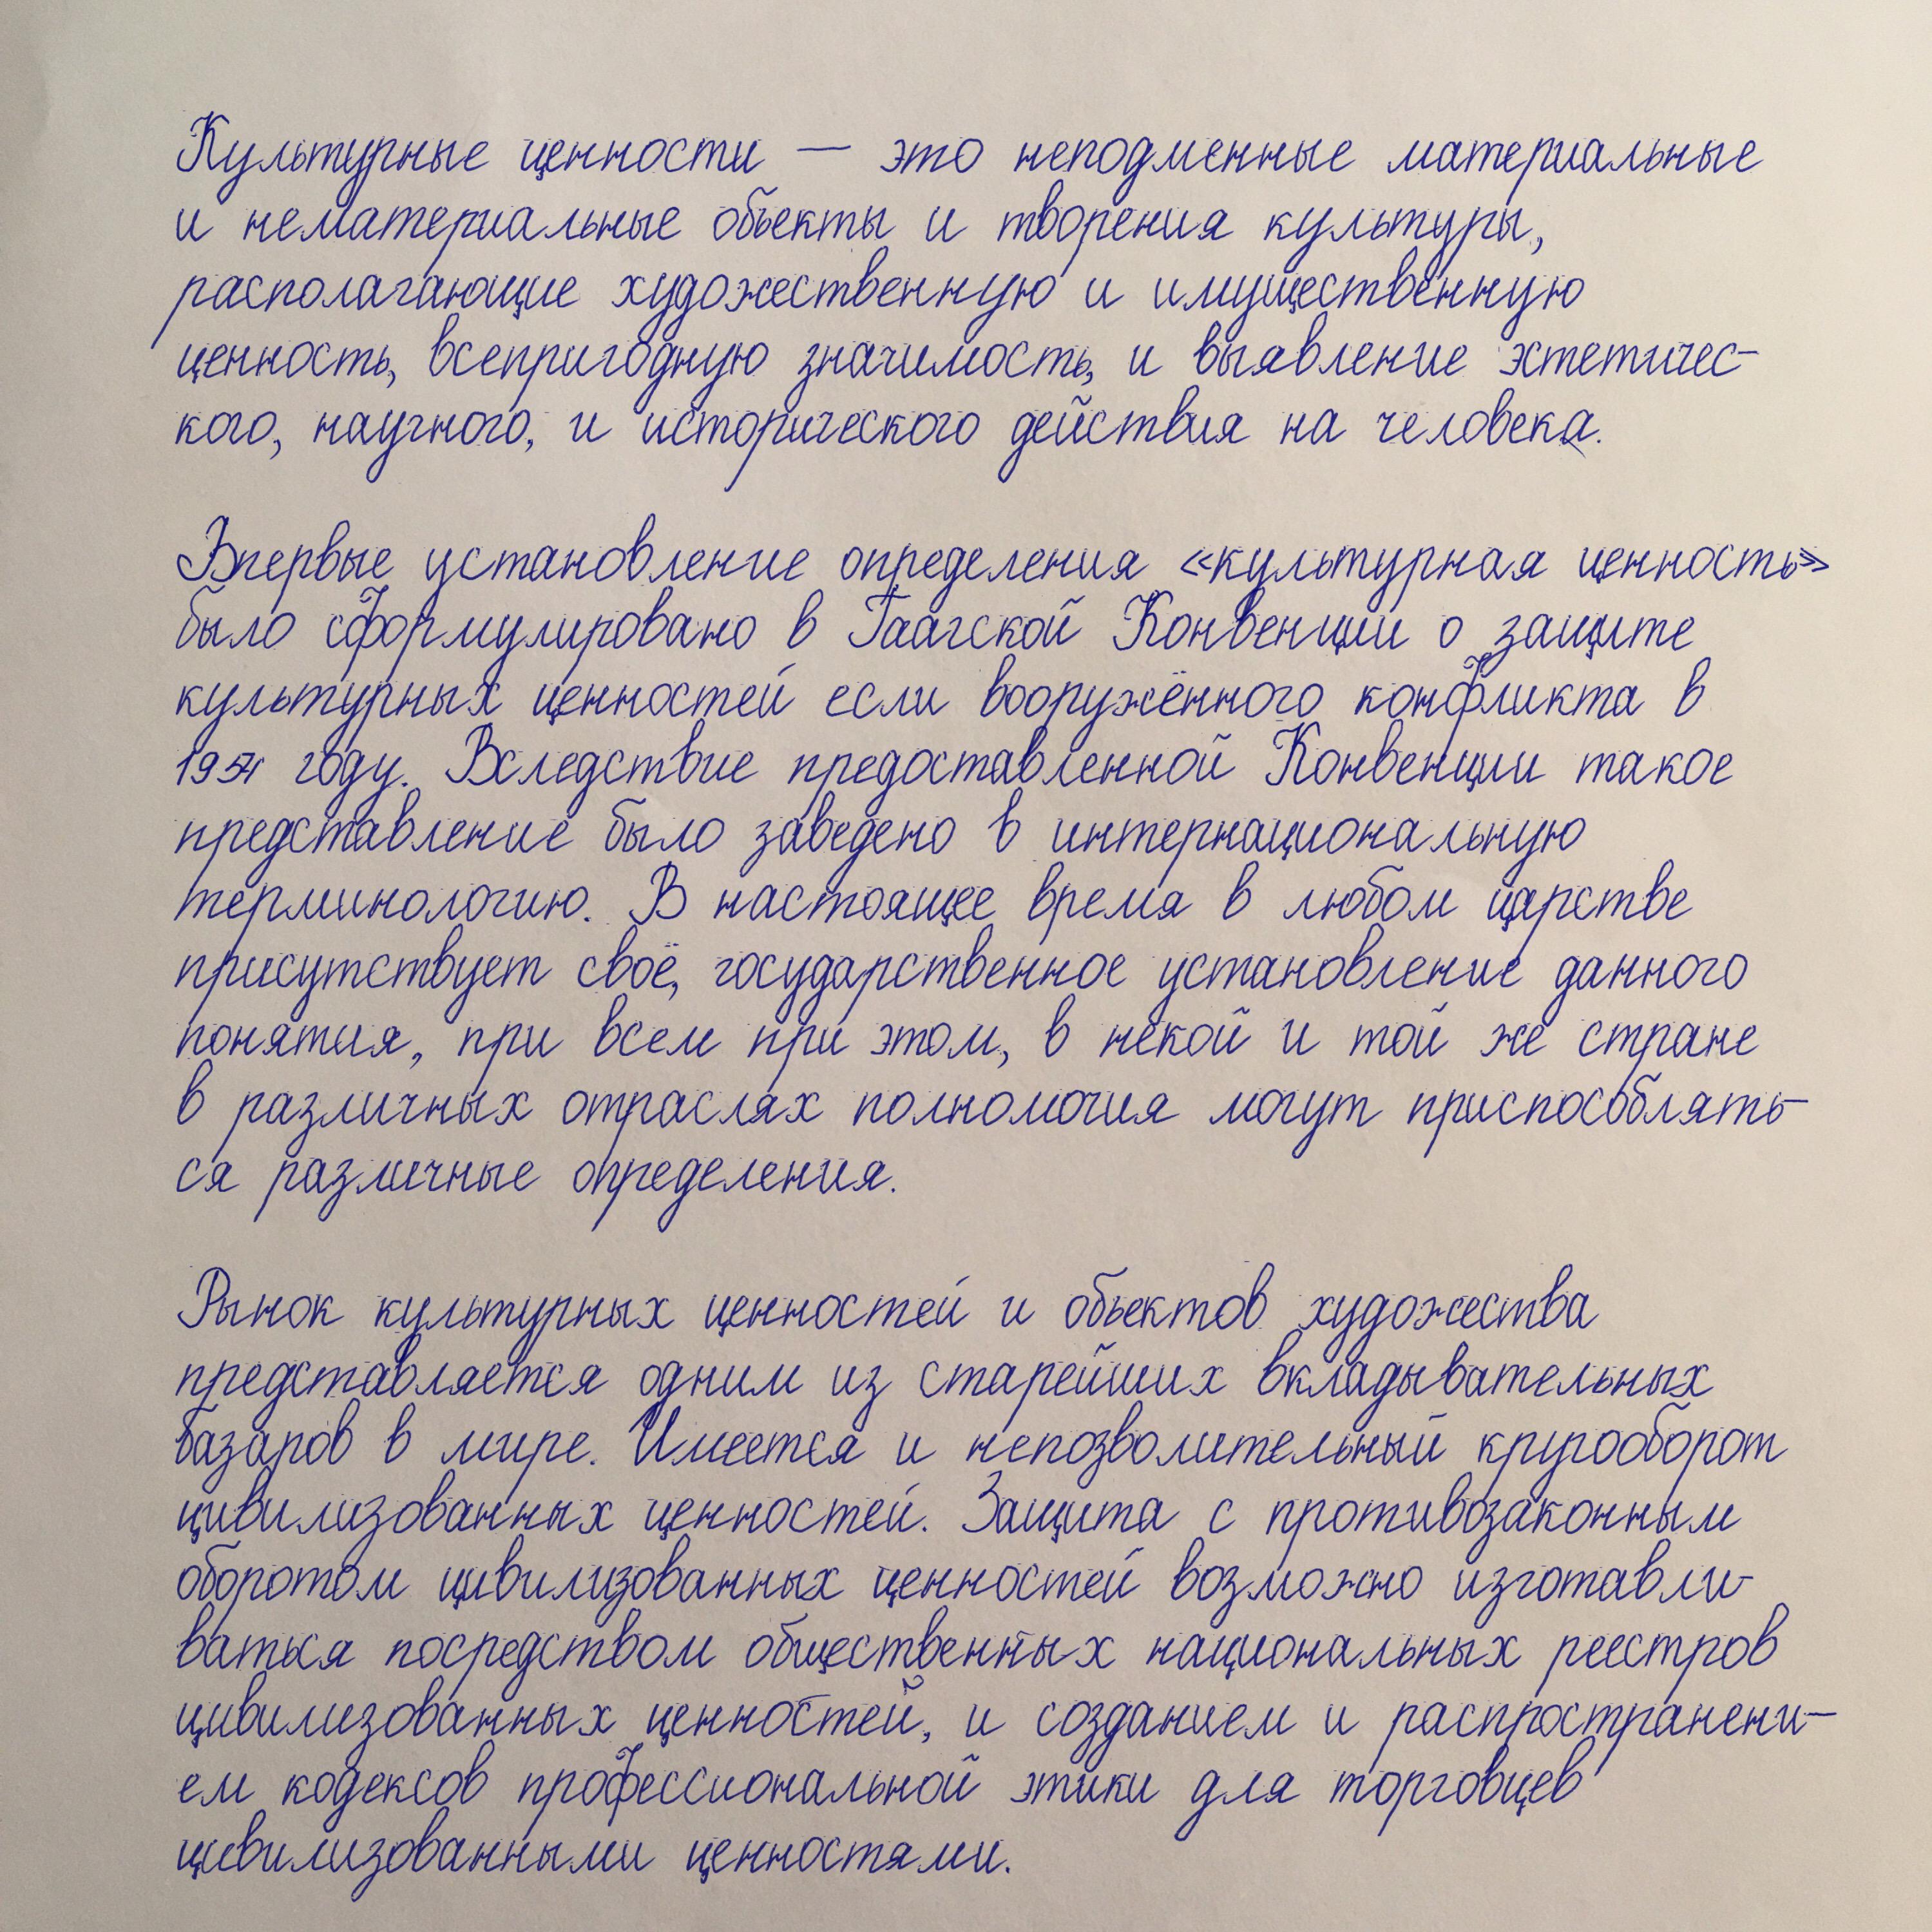 Культурные ценности — это неподменные материальные
и нематериальные объекты и творения культуры,
располагающие художественную и имущественную
ценность, всепригодную значимость, и выявление эстетичес-
кого, научного, и исторического действия на человека.
Впервые установление определения «культурная ценность»
было сформулировано в Гаагской Конвенции о защите
культурных ценностей если вооружённого конфликта в
1954 году. Вследствие предоставленной Конвенции такое
представление было заведено в интернациональную
терминологию. В настоящее время в любом царстве
присутствует своё, государственное установление данного
понятия, при всем при этом, в некой и той же стране
в различных отраслях полномочия могут приспособлять-
ся различные определения.
Рынок культурных ценностей и объектов художества
представляется одним из старейших вкладывательных
базаров в мире. Имеется и непозволительный кругооборот
цивилизованных ценностей. Защита с противозаконным
оборотом цивилизованных ценностей возможно изготавли-
ваться посредством общественных национальных реестров
цивилизованных ценностей, и созданием и распространени-
ем кодексов профессиональной этики для торговцев
цивилизованными ценностями.